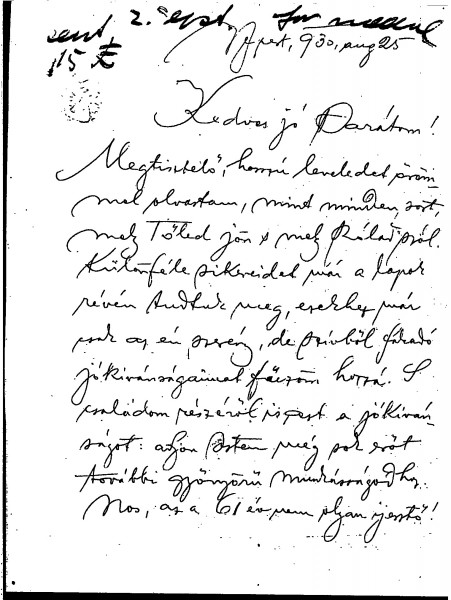 sent, 2. Sept. for medal
15 £
Bpest, 930, aug 25
Kedves jó Barátom!
Megtisztelő, hosszú leveledet öröm-
mel olvastam, mint minden sort,
mely Tőled jön s mely Rólad szól.
Különféle sikereidet már a lapok
révén tudtuk meg, ezekhez már
csak az én szerény, de szívből fakadó
jókivánságaimat fűzöm hozzá. S
családom részéről is azt a jókiván-
ságot: adjon Isten még sok erőt
további gyönyörű munkásságodhoz.
Nos, az a 61 év nem olyan ijesztő!